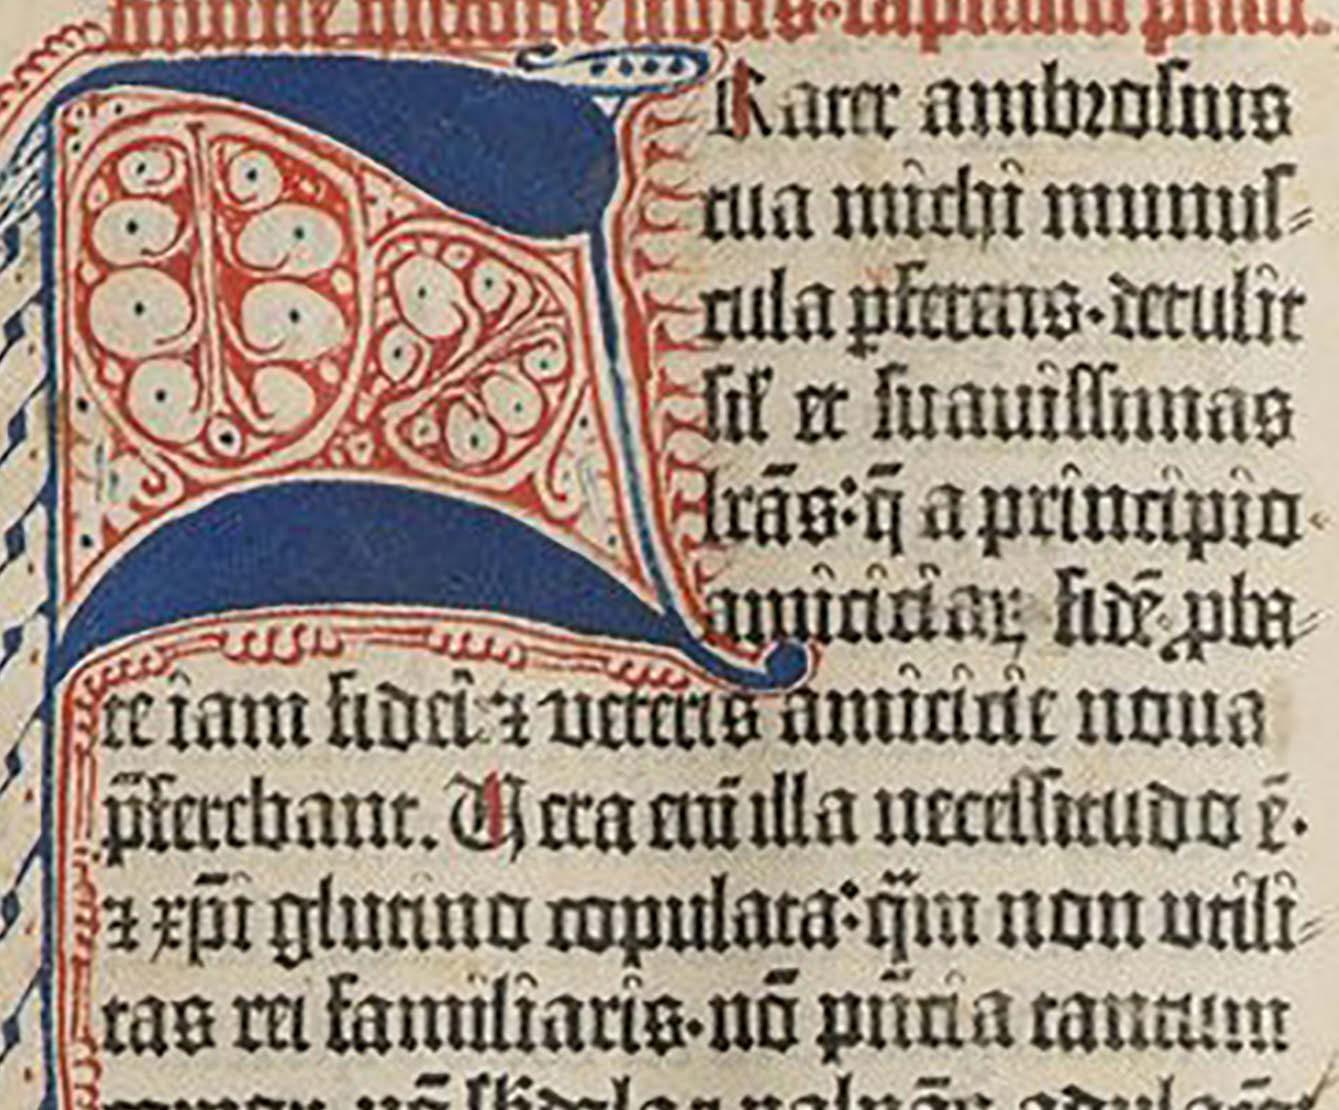 Frater ambrosius
tua michi munus⸗
cula ꝑferens·detulit
sil̛ et suauissimas
lr̄as:q̄ a principio
amiciciaꝝ fidē ꝓba⸗
te iam fidei ⁊ veteris amicicie noua
p̄ferebant. Uera eni̅ illa necessitudo ē·
⁊ xp̄i glutino copulata:qm̄ non vtili⸗
tas rei familiaris·nō pn̄cia tantum